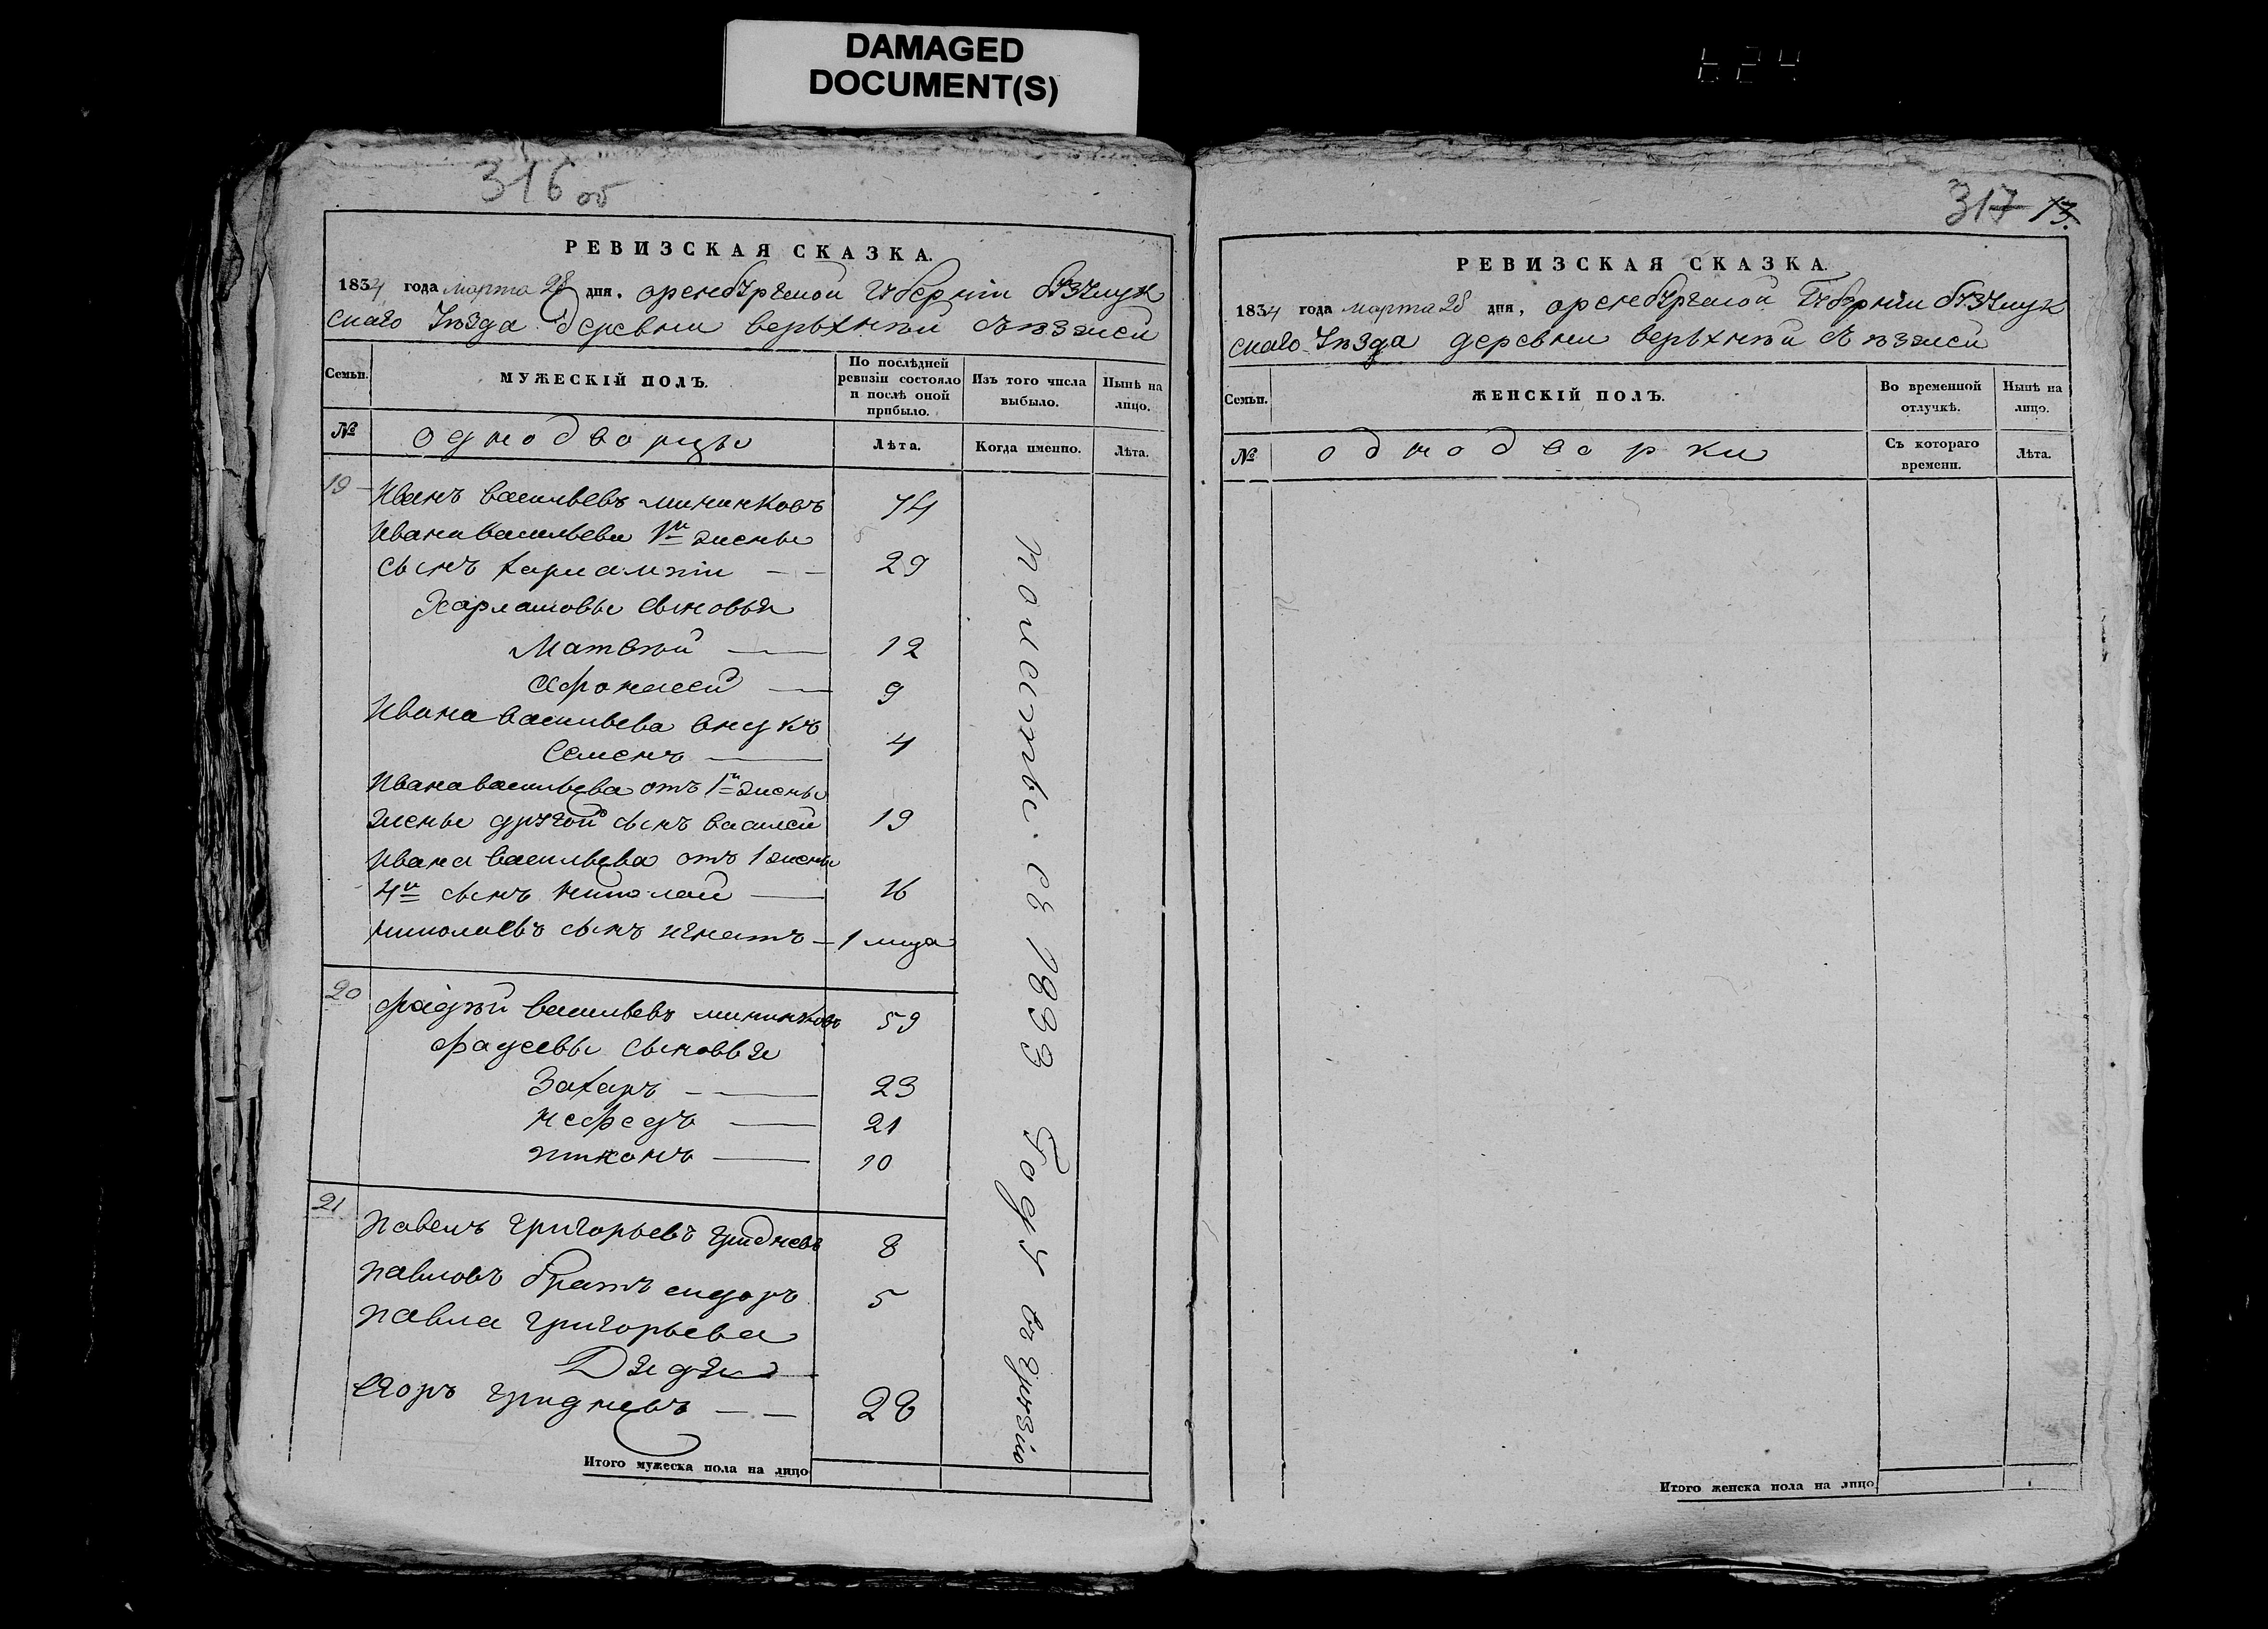 DAMAGED
DOCUMENT(S)
316 об
РЕВИЗСКАЯ СКАЗКА.
1834 года марта 28 дня, оренбургской губерніи бузулук
скаго уѣзда деревни верьхнѣй
Семьи.
МУЖЕСКІЙ ПОЛЪ.
По послѣдней
ревизіи состояло
и послѣ оной
прибыло.
Изъ того числа
выбыло.
Нынѣ на
лицо.
№
однодворцы
Лѣта.
Когда именно.
Лѣта.
19 Иванъ васильевъ мининковъ 74
Ивана васильева 1й жены
сынъ харлампій 29
Харламовы сыновья
Матвѣй 12
афонасей 9
Ивана васильева внукъ
Семенъ 4
Ивана васильева отъ 1й жены
жены другой сынъ василей 19
Ивана васильева отъ 1 жены
4й сынъ николай 16
николаевъ сынъ игнатъ 1
20 фадѣй васильевъ мининковъ 59
фадеевы сыновья
Захаръ 23
нефедъ 21
тихонъ 10
21 павелъ григорьевъ гридневъ 8
павловъ братъ сидоръ 5
павла григорьева
Дядя
егоръ гридневъ 28
въ 1833 Году въ грузію
Итого мужеска пола на лицо
317 13.
РЕВИЗСКАЯ СКАЗКА.
1834 года марта 28 дня, оренбургской Губерніи бузулук
скаго уѣзда деревни верьхнѣй
Семьи.
ЖЕНСКІЙ ПОЛЪ.
Во временной
отлучкѣ.
Нынѣ на
лицо.
№
однодворки
Съ котораго
времени.
Лѣта.
Итого женска пола на лицо